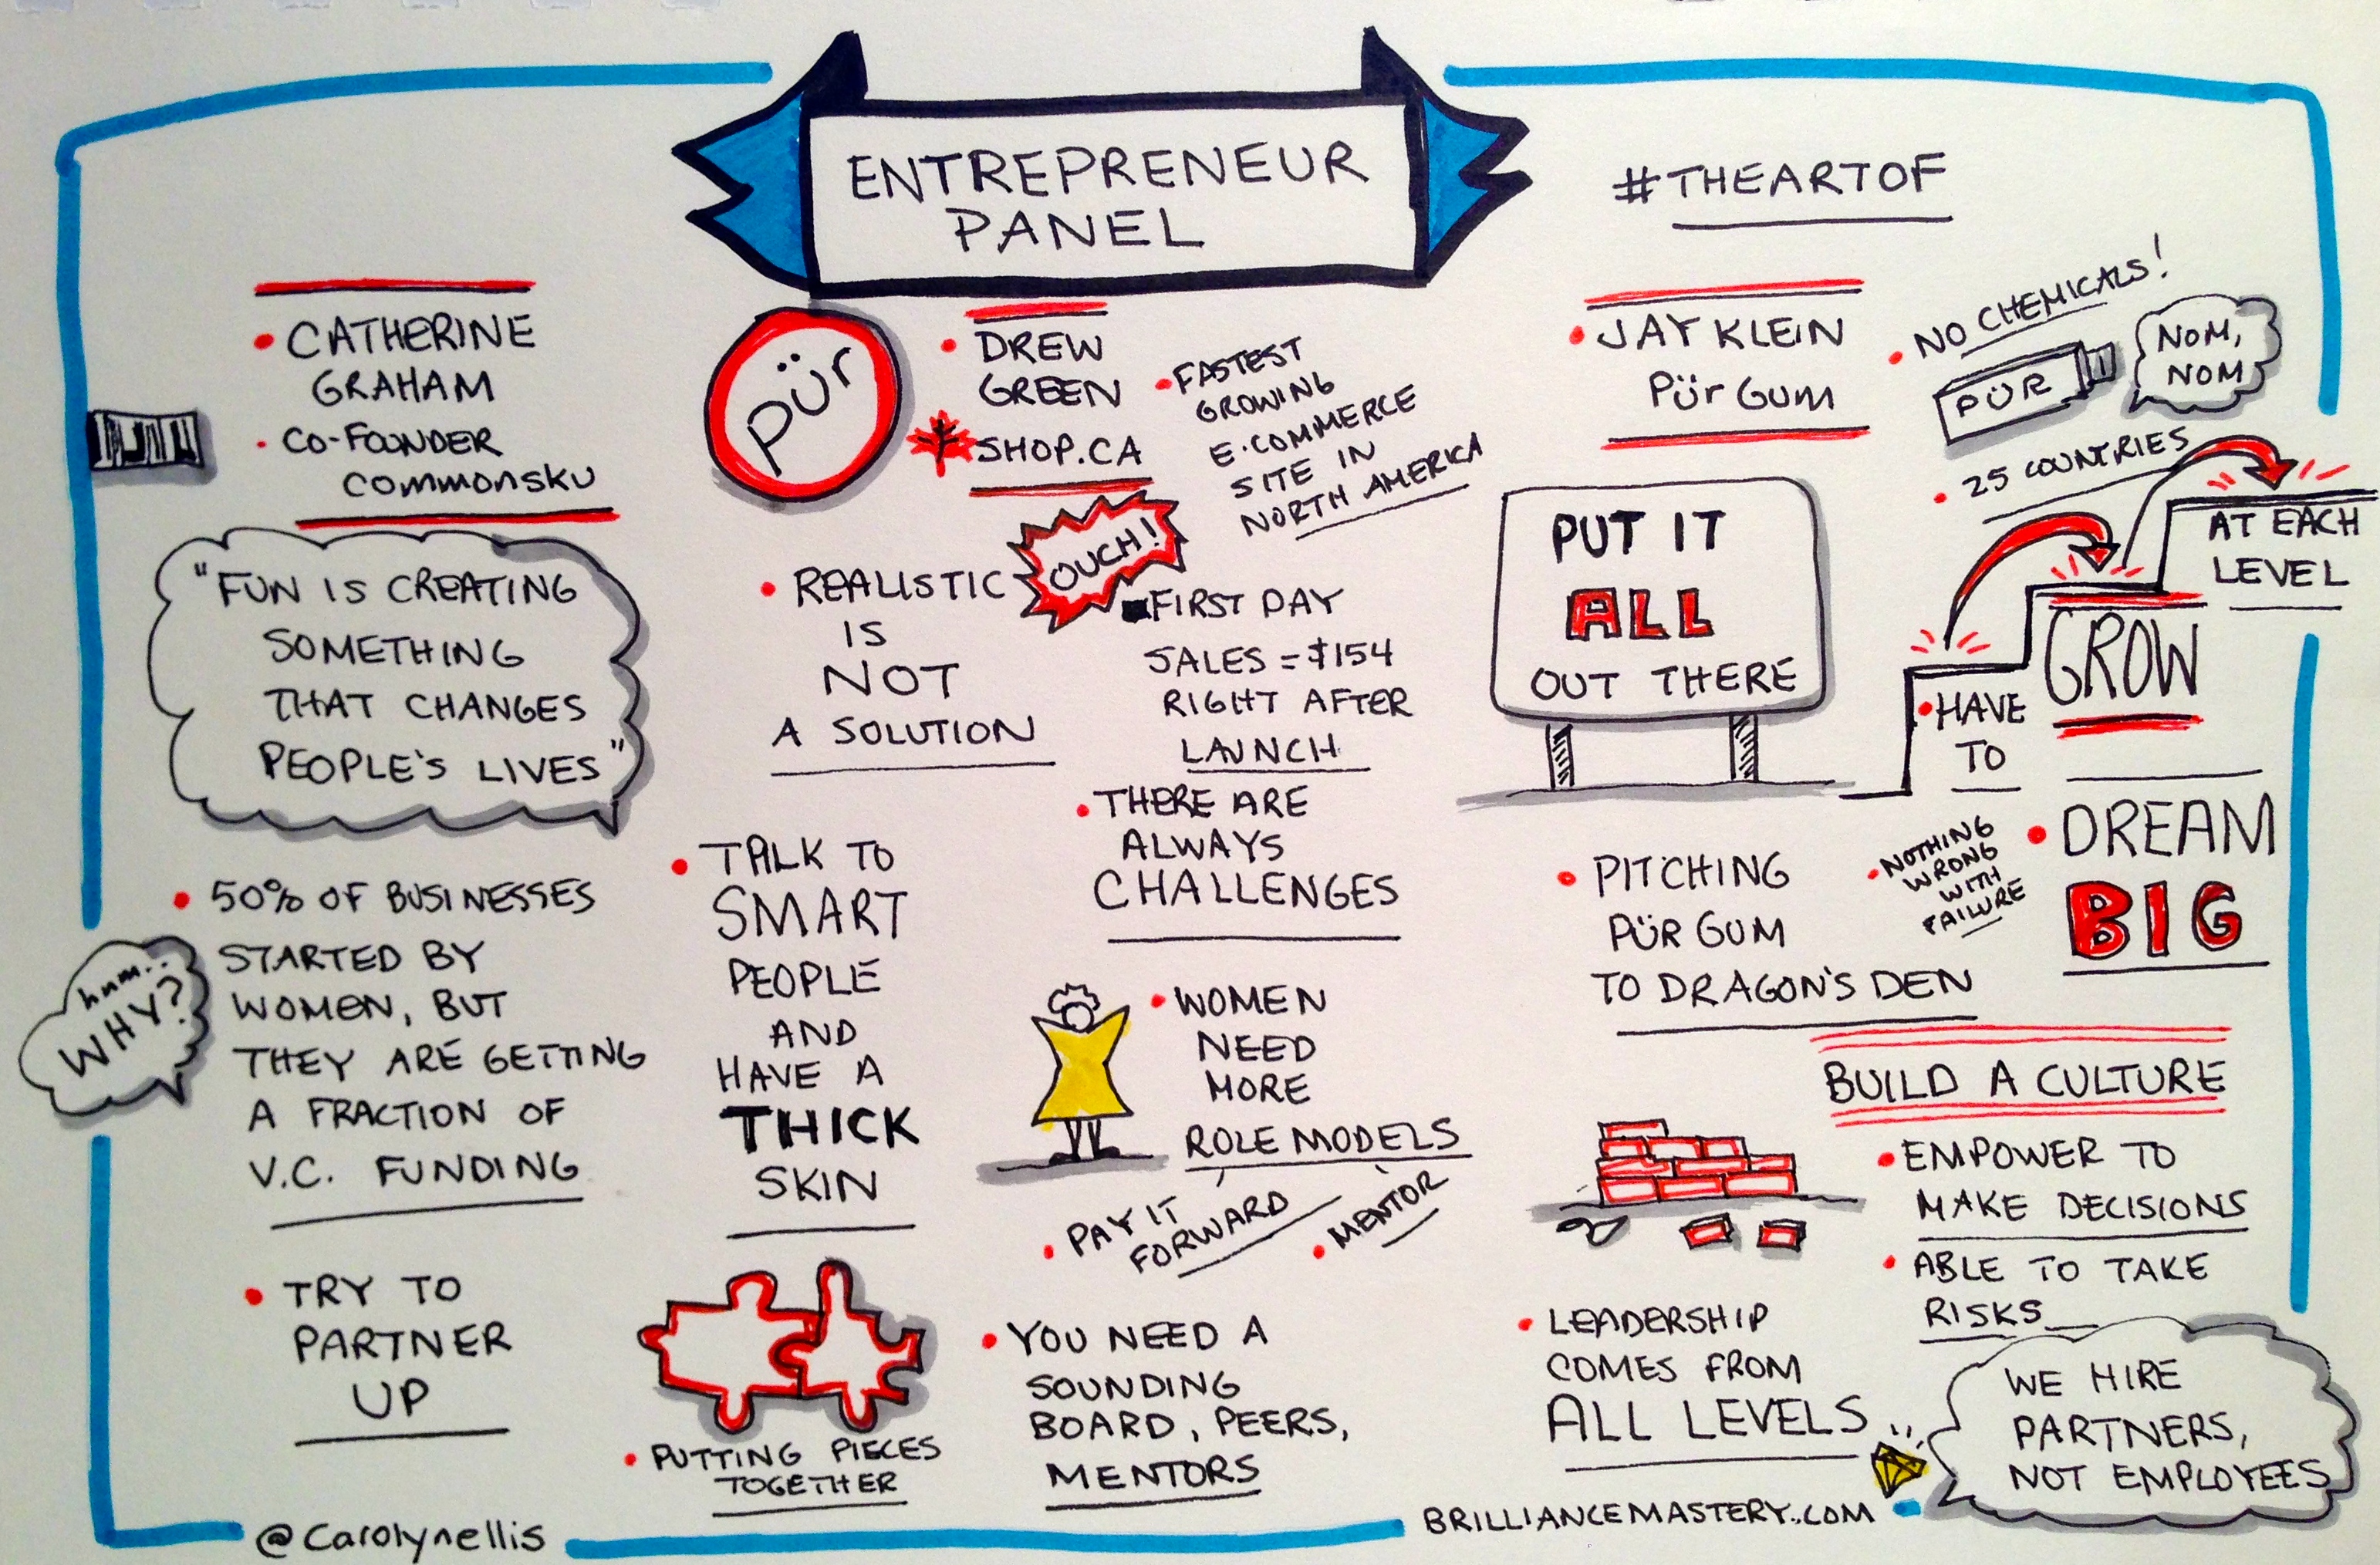 ENTREPRENEUR
PANEL
#THEARTOF
• CATHERINE
GRAHAM
• CO-FOUNDER
commonsku
"FUN IS CREATING
SOMETHING
THAT CHANGES
PEOPLE'S LIVES"
• 50% OF BUSINESSES
STARTED BY
WOMEN, BUT
THEY ARE GETTING
A FRACTION OF
V.C. FUNDING
hmm..
WHY?
• TRY TO
PARTNER
UP
Pür
• DREW
GREEN
SHOP.CA
• FASTEST
GROWING
E-COMMERCE
SITE IN
NORTH AMERICA
OUCH!
• REALISTIC
IS
NOT
A SOLUTION
FIRST DAY
SALES = $154
RIGHT AFTER
LAUNCH
• THERE ARE
ALWAYS
CHALLENGES
• TALK TO
SMART
PEOPLE
AND
HAVE A
THICK
SKIN
• WOMEN
NEED
MORE
ROLE MODELS
• PAY IT
FORWARD
• MENTOR
• PUTTING PIECES
TOGETHER
• YOU NEED A
SOUNDING
BOARD, PEERS,
MENTORS
• JAY KLEIN
Pür GUM
• NO CHEMICALS!
PÜR
NOM,
NOM
• 25 COUNTRIES
PUT IT
ALL
OUT THERE
• HAVE
TO
GROW
AT EACH
LEVEL
• PITCHING
PÜR GUM
TO DRAGON'S DEN
• NOTHING
WRONG
WITH
FAILURE
• DREAM
BIG
BUILD A CULTURE
• EMPOWER TO
MAKE DECISIONS
• ABLE TO TAKE
RISKS
• LEADERSHIP
COMES FROM
ALL LEVELS
WE HIRE
PARTNERS,
NOT EMPLOYEES
@Carolynellis
BRILLIANCEMASTERY.COM